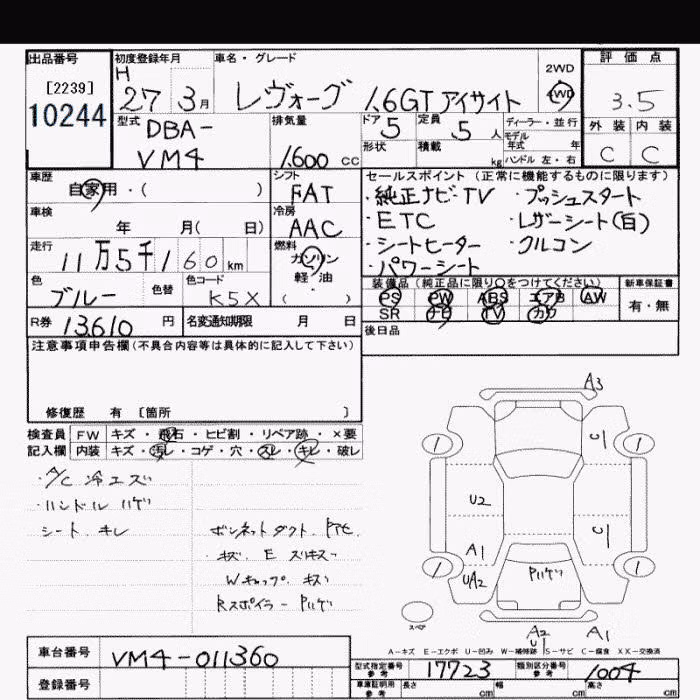 出品番号 初度登録年月 車名・グレード 評価点
[2239]
10244
H
27 3月 レヴォーグ 1.6GT アイサイト 2WD 4WD 3.5
型式 排気量 ドア 定員 ディーラー・並行 外装 内装
DBA-
VM4
1.600 cc
5 5人
モデル年式 年
形状 積載 kg ハンドル 左・右
C C
車歴 シフト セールスポイント(正常に機能するものに限ります)
自家用・( ) FAT
・純正ナビ・TV ・プッシュスタート
車検 冷房
年 月( 日) AAC
・ETC ・レザーシート(白)
走行 燃料
11万5千160km ガソリン
軽・油
( )
・シートヒーター ・クルコン
・パワーシート
色 色替 色コード
ブルー K5X
装備品(純正品に限り○をつけてください) 新車保証書
PS PW ABS エアB AW
SR ナビ TV カワ
有・無
R券 13610円 名変通知期限 月 日
後日品
注意事項申告欄(不具合内容等は具体的に記入して下さい)
修復歴 有 〔箇所 〕
検査員 FW キズ・飛石・ヒビ割・リペア跡・×要
記入欄 内装 キズ・汚レ・コゲ・穴・スレ・キレ・破レ
・A/C 冷エズ
・ハンドル ハゲ
シート. キレ
ボンネットダクト. Pアセ.
・キズ. E スリキズ
Wキャップ. キズ
Rスポイラー Pハゲ
A3
1 C 1
U2 C
A1
UA2
1 Pハゲ 1
スペア
A2
U1
A1
A-キズ E-エクボ U-凹み W-補修跡 S-サビ C-腐食 XX-交換済
車台番号 VM4-011360
登録番号
型式指定番号 参考 17723 類別区分番号 参考 1004
車庫証明用 参考 長さ cm 幅 cm 高さ cm